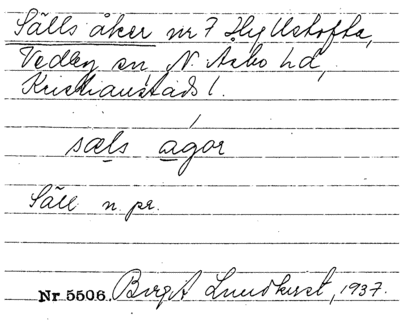 Sälls åker nr 7 Hlg Ustofta,
Vedby sn, N. Åsbo hd,
Kristianstads l.
sæls agor
Säll n. pr.
Nr 5506. Birgit Lundkvist, 1937.